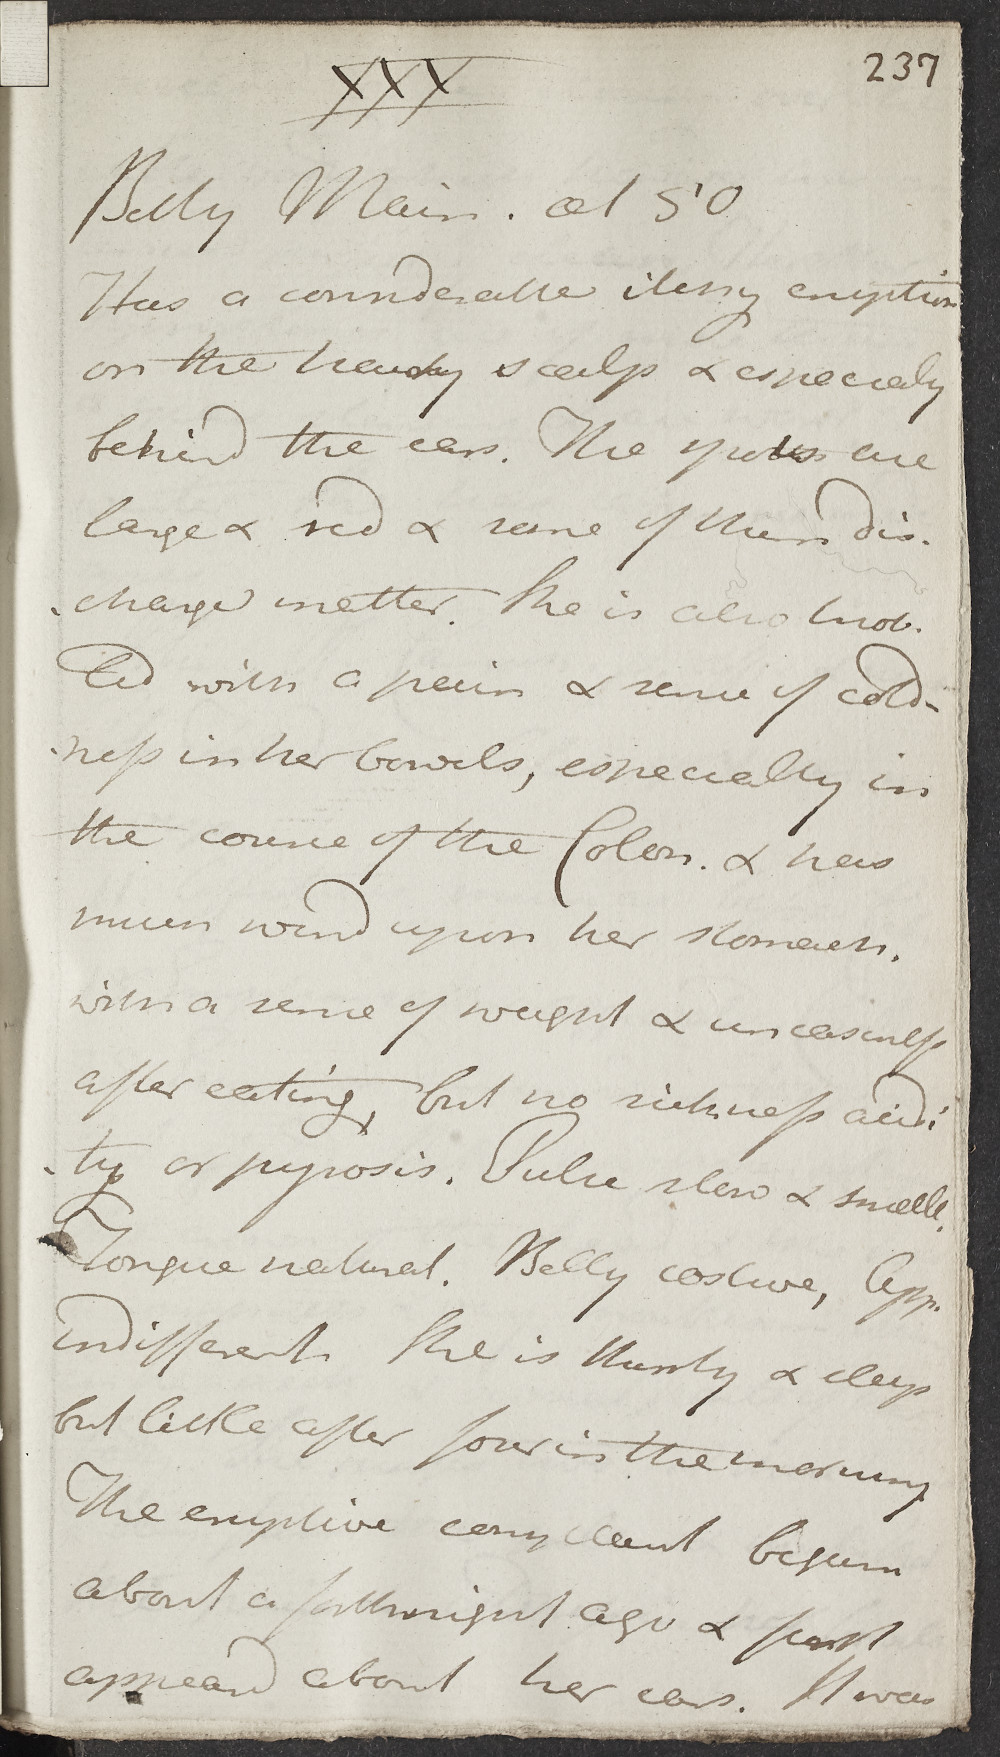 237
XXX
Betty Main. æt 50
Has a considerable itchy eruption
on the heady scalp & especialy
behind the ears. The spots are
large & red & some of them dis-
-charge matter. She is also troub-
led with a pain & sense of cold-
-ness in her bowels, especially in
the course of the Colon. & has
much wind upon her stomach.
with a sense of weight & uneasiness
after eating, but no sickness acidi
-ty or pyrosis. Pulse slow & small.
Tongue natural. Belly costive, App.
indifferent. She is thirsty & sleeps
but little after four in the morning
The eruptive complaint begun
about a fortnight ago & first
appeard about her ears. It was